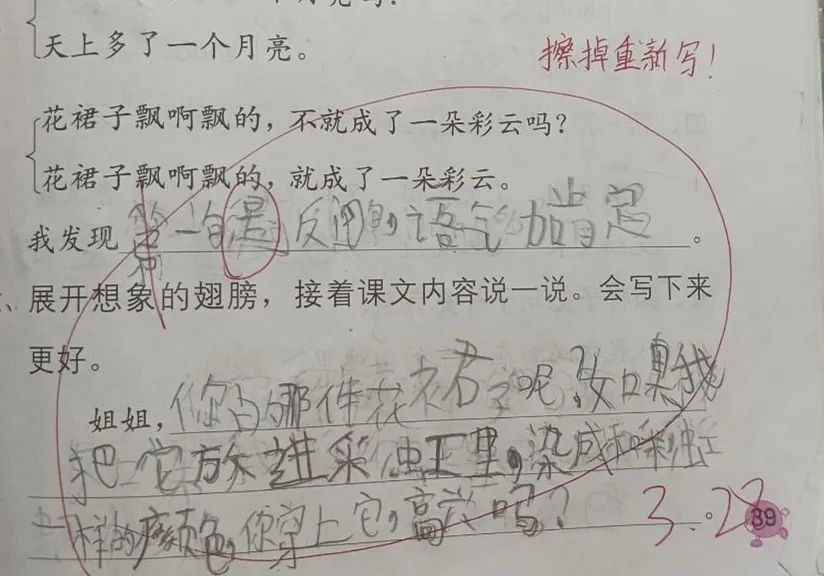 天上多了一个月亮。
擦掉重新写!
花裙子飘啊飘的，不就成了一朵彩云吗？
花裙子飘啊飘的，就成了一朵彩云。
我发现 第一句是反问句，语气 加肯定。
展开想象的翅膀，接着课文内容说一说。会写下来
更好。
姐姐，你的那件花裙子呢？如果我
把它放进彩虹里，染成和彩虹
一样的颜色，你穿上它，高兴吗？
3.27
89